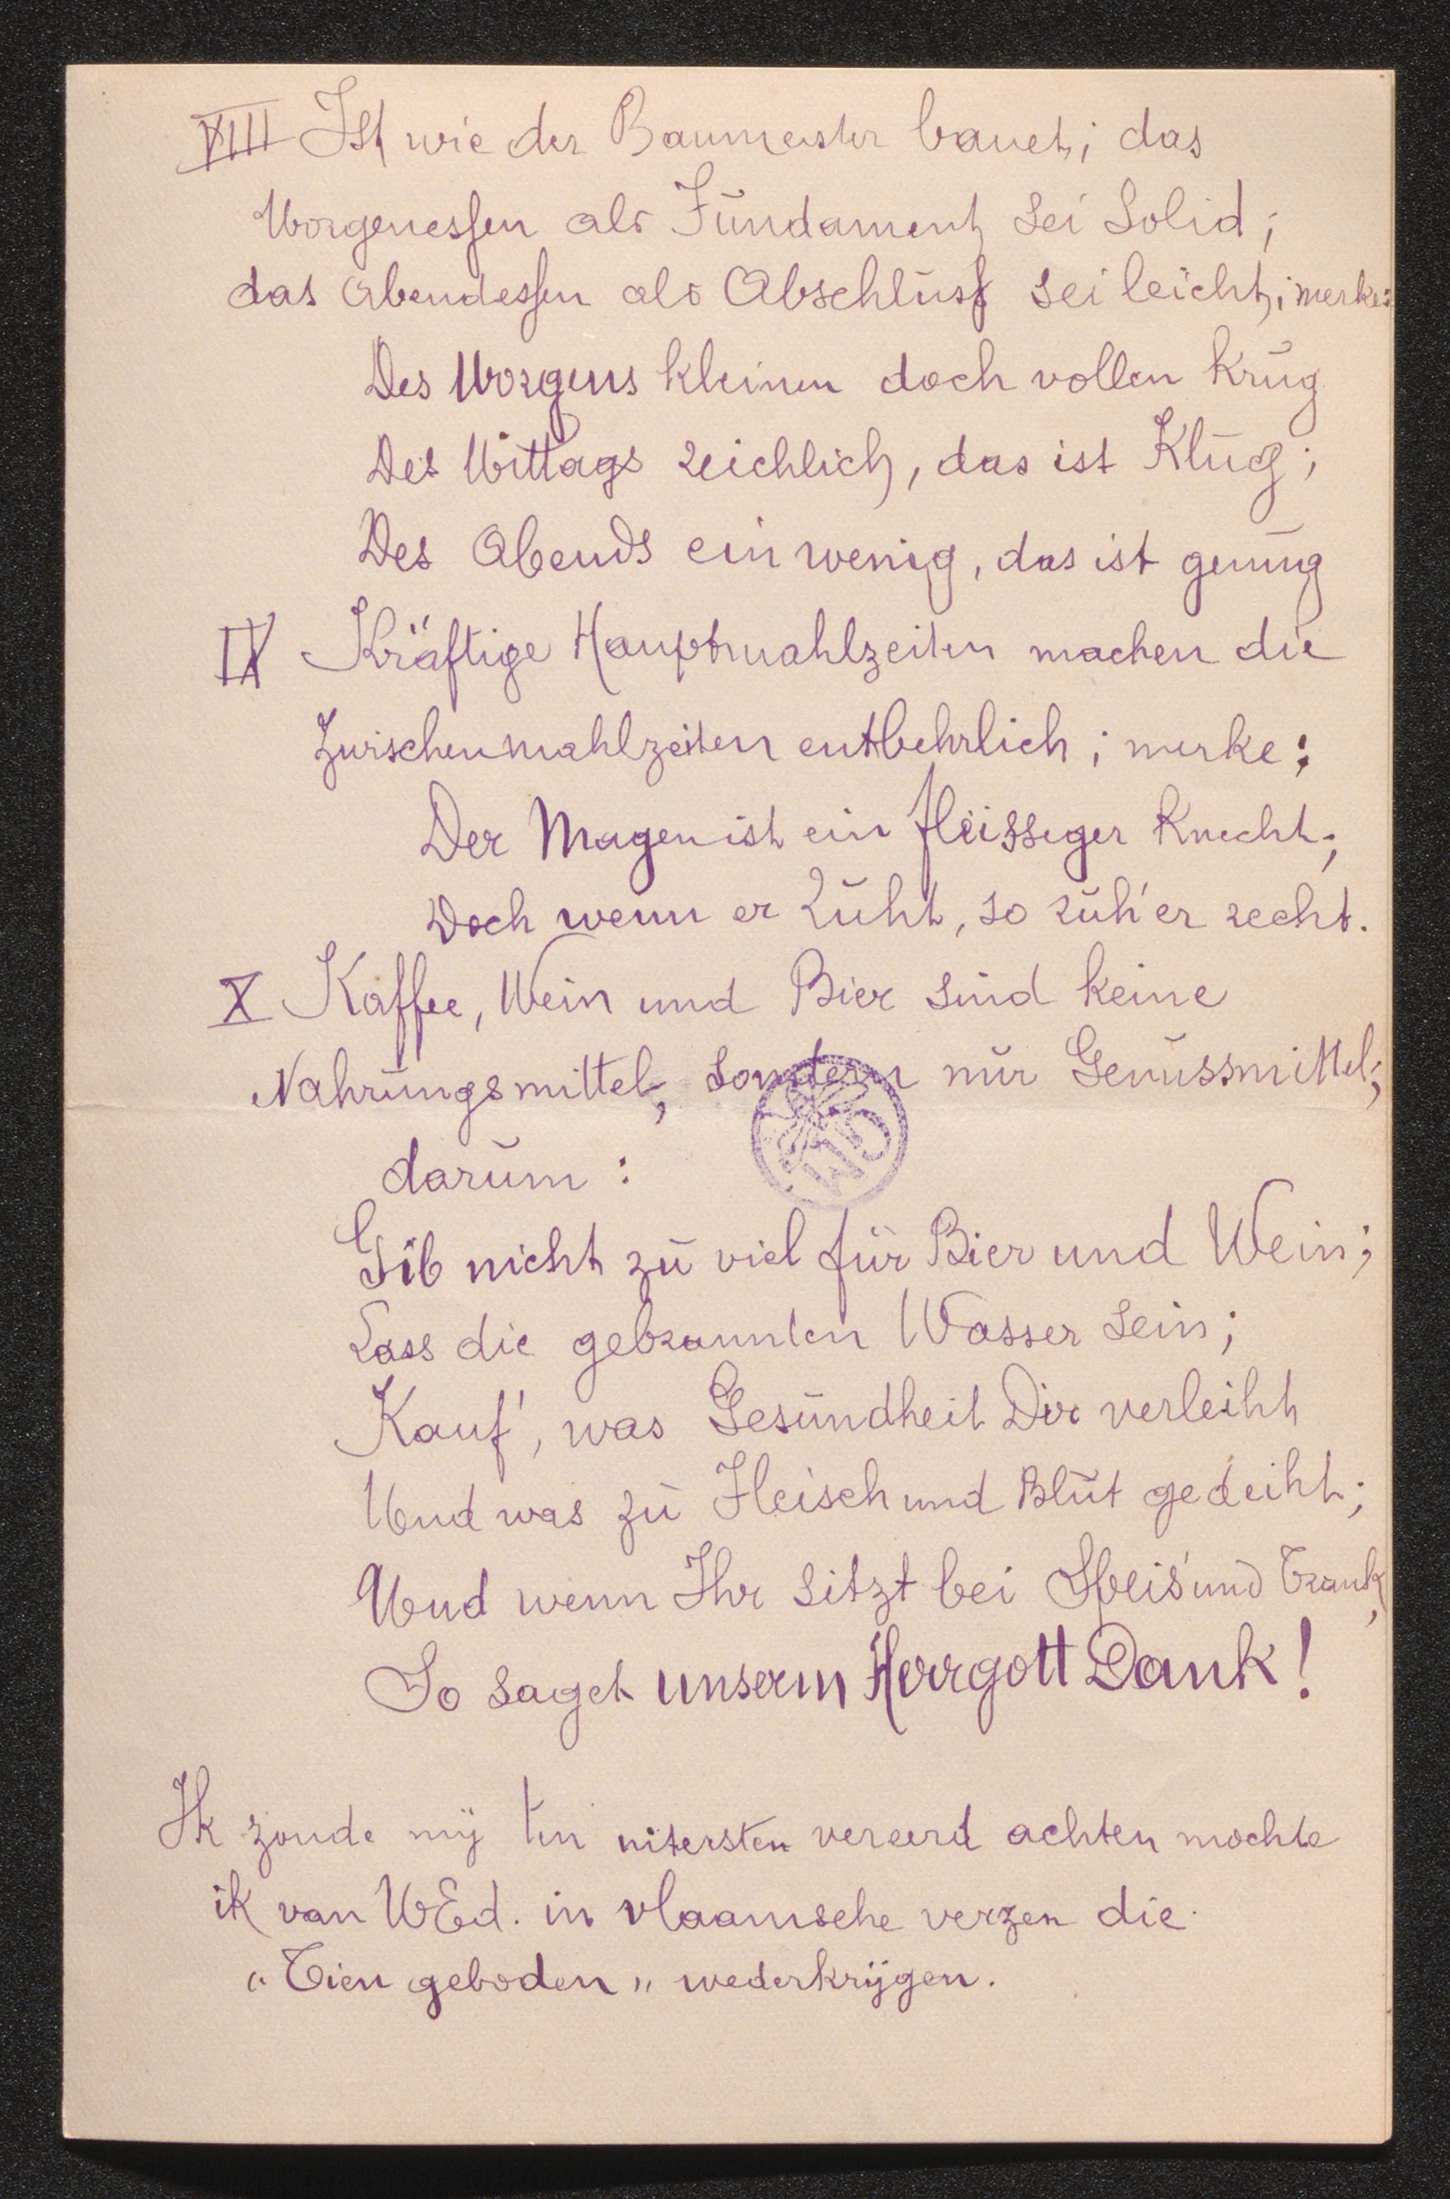 VIII Ist wie der Baumeister bauet; das
Morgenessen als Fundament sei solid;
das Abendessen als Abschluss sei leicht; merke:
Des Morgens kleinen doch vollen Krug
Des Mittags reichlich, das ist Klug;
Des Abends ein wenig, das ist genug
IX Kräftige Hauptmahlzeiten machen die
Zwischenmahlzeiten entbehrlich; merke:
Der Magen ist ein fleissiger Knecht;
Doch wenn er ruht, so ruh' er recht.
X Kaffee, Wein und Bier sind keine
Nahrungsmittel, sondern nur Genussmittel;
darum:
Gib nicht zu viel für Bier und Wein;
Lass die gebrannten Wasser sein;
Kauf', was Gesundheit Dir verleiht
Und was zu Fleisch und Blut gedeiht;
Und wenn Ihr sitzt bei Speis' und Trank,
So saget unserm Herrgott Dank!
Ik zoude mij ten uitersten vereerd achten mochte
ik van UEd. in vlaamsche verzen die
"Tien geboden" wederkrijgen.